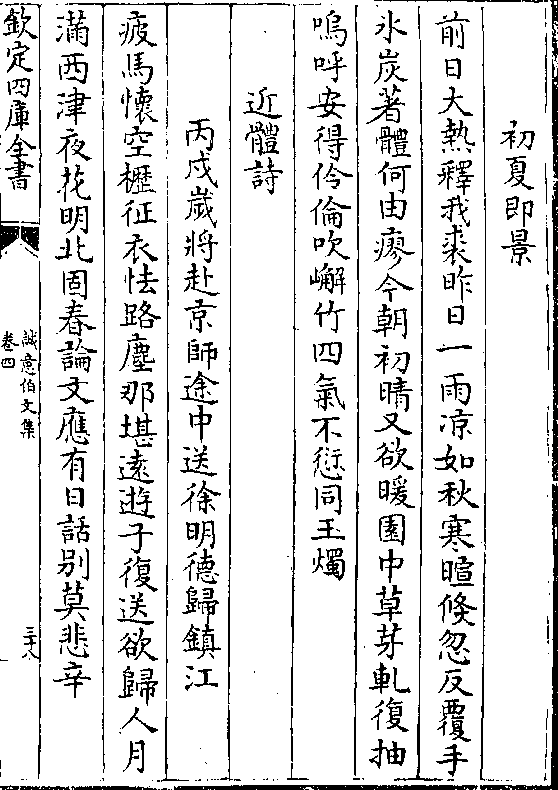 初夏即景
前日大熱釋我裘昨日一雨凉如秋寒暄倏忽反覆手
氷炭著體何由瘳今朝初晴又欲暖園中草芽軋復抽
嗚呼安得伶倫吹嶰竹四氣不愆同玉燭
近體詩
丙戌嵗將赴京師途中送徐明德歸鎮江
疲馬懷空櫪征衣怯路塵那堪逺遊子復送欲歸人月
滿西津夜花明北固春論文應有日話别莫悲辛
欽定四庫全書
誠意伯文集
卷四
三十八